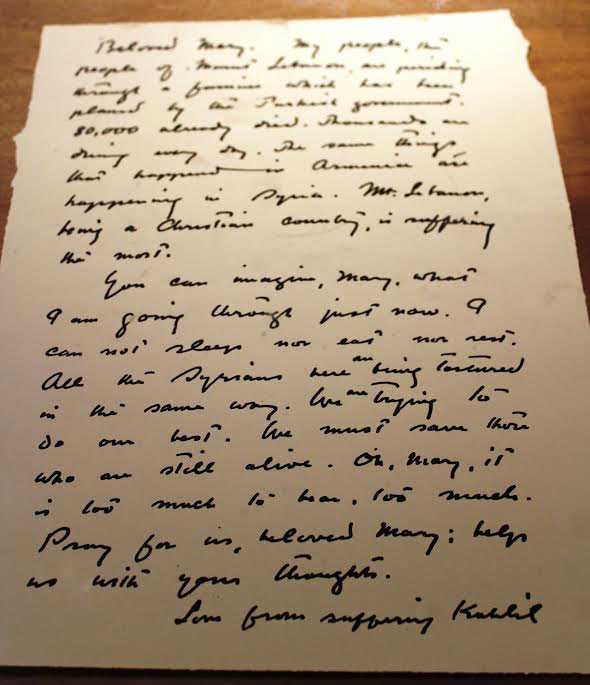 Beloved Mary. My people, the
people of Mount Lebanon, are perishing
through a famine which has been
planed by the Turkish government.
80,000 already died. Thousands are
dying every day. The same things
that happened in Armenia are
happening in Syria. Mt. Lebanon,
being a Christian country, is suffering
the most.
You can imagine, Mary, what
I am going through just now. I
can not sleep nor eat nor rest.
All the Syrians here are being tortured
in the same way. We are trying to
do our best. We must save those
who are still alive. Oh, Mary, it
is too much to bear, too much.
Pray for us, beloved Mary; help
us with your thoughts.
Love from suffering Kahlil